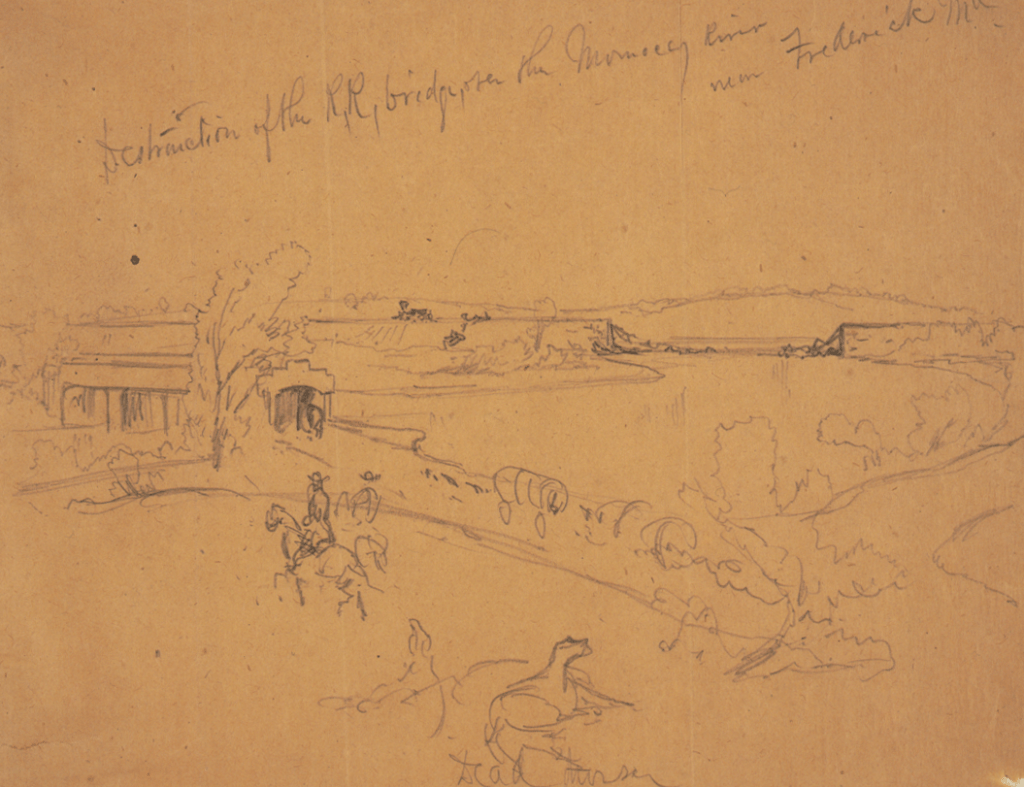 Destruction of the R,R, bridge, over the Monocacy River
near Frederick Md
Dead Horses